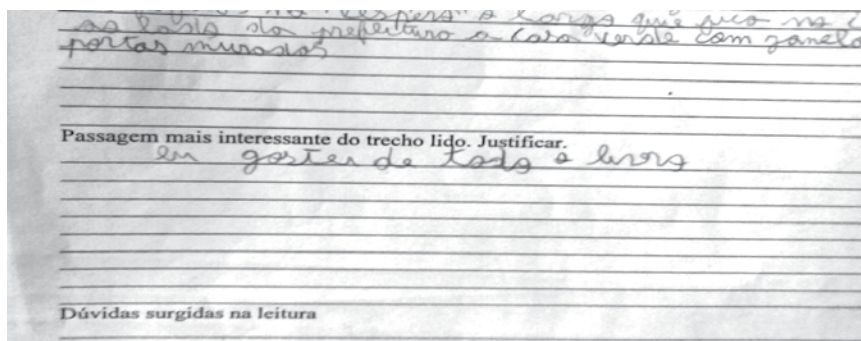 ao lado da prefeitura a casa verde com janela
portas muradas
Passagem mais interessante do trecho lido. Justificar.
eu gostei de todo o livro
Dúvidas surgidas na leitura